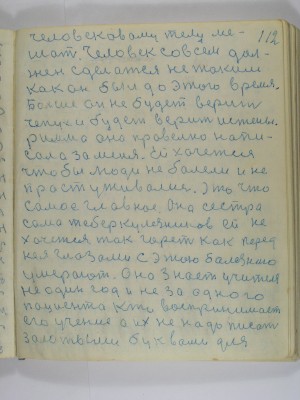 112
человсковому телу ме-
шат. Человек совсем дол-
жен сделатся не таким
как он был до этого время.
Больше он не будет верит
чепухе и будет верит истены.
Римма она правелно напи-
сала за меня. Ей хочется
чтобы люди не болели и не
прастуживалис. Это что
самое главное. Она сестра
сама теберкулезников ей не
хочется так гарет как перед
нея глазами с этою балезнию
умерают. Она знает учителя
не один год и не за одного
пациента кто воспринимает
его учение а их не надо писат
залотыми буквами для